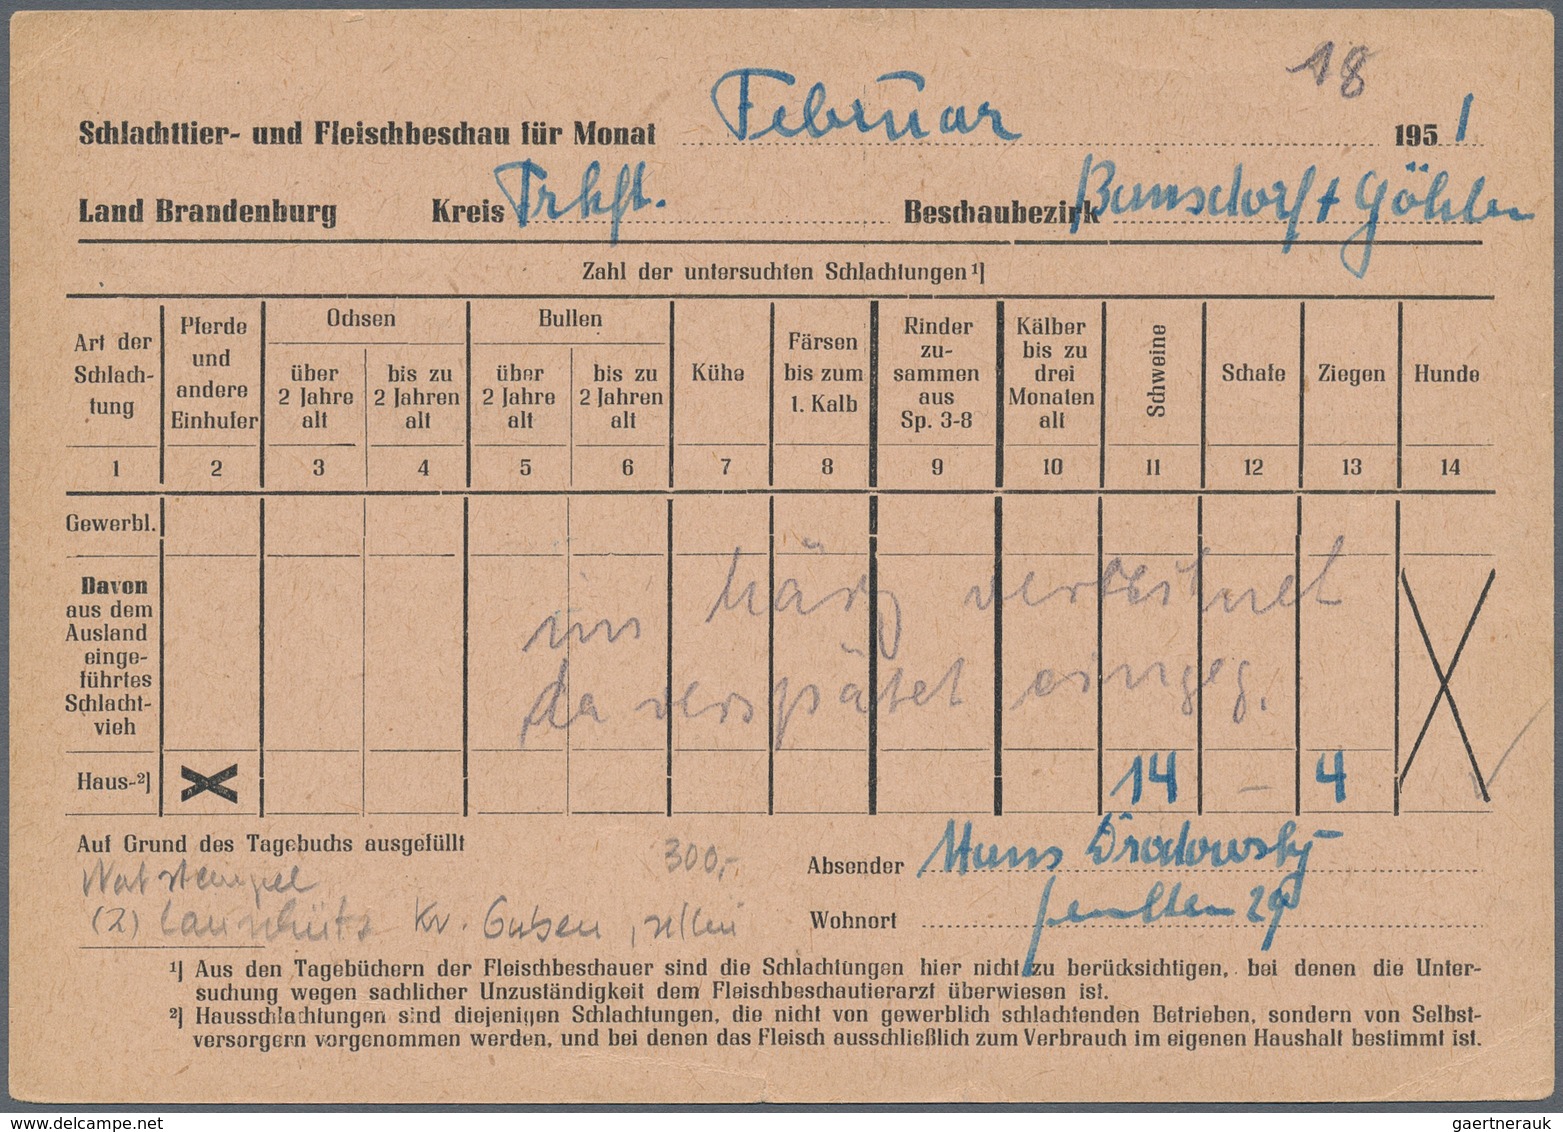 18
Schlachttier- und Fleischbeschau für Monat Februar 1951
Land Brandenburg Kreis Beschaubezirk
Zahl der untersuchten Schlachtungen ¹)
Art der Schlach-tung
Pferde und andere Einhufer
Ochsen
über 2 Jahre alt
bis zu 2 Jahren alt
Bullen
über 2 Jahre alt
bis zu 2 Jahren alt
Kühe
Färsen bis zum 1. Kalb
Rinder zu-sammen aus Sp. 3-8
Kälber bis zu drei Monaten alt
Schweine
Schafe
Ziegen
Hunde
1 2 3 4 5 6 7 8 9 10 11 12 13 14
Gewerbl.
Davon
aus dem
Ausland
einge-
führtes
Schlacht-
vieh
im März
da verspätet eingeg.
Haus-²) X 14 – 4
Auf Grund des Tagebuchs ausgefüllt
300,-
Absender Hans
Notstempel
(2) Kr. Guben
Wohnort
¹) Aus den Tagebüchern der Fleischbeschauer sind die Schlachtungen hier nicht zu berücksichtigen, bei denen die Unter-
suchung wegen sachlicher Unzuständigkeit dem Fleischbeschautierarzt überwiesen ist.
²) Hausschlachtungen sind diejenigen Schlachtungen, die nicht von gewerblich schlachtenden Betrieben, sondern von Selbst-
versorgern vorgenommen werden, und bei denen das Fleisch ausschließlich zum Verbrauch im eigenen Haushalt bestimmt ist.
gaertnerauk @ delcampe.net